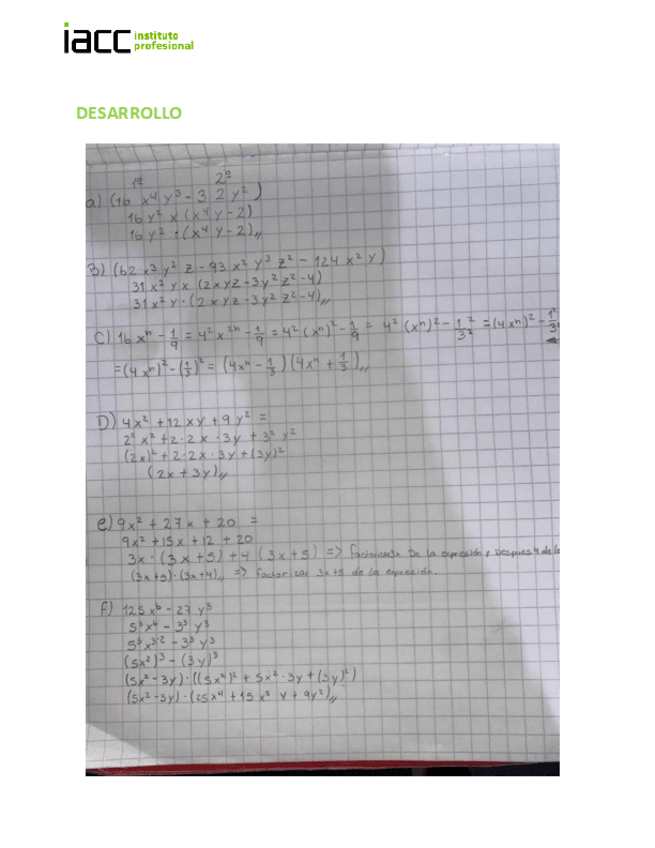 iacc instituto profesional
DESARROLLO
1º 2º
a) (16 x⁴ y³ - 32 y²)
16 y² x (x⁴ y - 2)
16 y² · (x⁴ y - 2)
B) (62 x³ y² z - 93 x² y³ z² - 124 x² y)
31 x² y x (2xyz - 3y² z² - 4)
31 x² y · (2xyz - 3y² z² - 4)
C) 16 xⁿ - 1/9 = 4² x²ⁿ - 1/9 = 4² (xⁿ)² - 1/9 = 4² (xⁿ)² - 1²/3² = (4xⁿ)² - 1²/3²
= (4xⁿ)² - (1/3)² = (4xⁿ - 1/3) (4xⁿ + 1/3)
D) 4x² + 12xy + 9y² =
2² x² + 2·2x · 3y + 3² y²
(2x)² + 2·2x · 3y + (3y)²
(2x + 3y)
e) 9x² + 27x + 20 =
9x² + 15x + 12 + 20
3x · (3x + 5) + 4 (3x + 5) => De la expresión, Despues 4 de
(3x+5) · (3x+4) => factorizar 3x+5 de la expresión.
F) 125x⁶ - 27y³
5³x⁶ - 3³ y³
5³x³·² - 3³ y³
(5x²)³ - (3y)³
(5x² - 3y) · ((5x²)² + 5x² · 3y + (3y)²)
(5x² - 3y) · (25x⁴ + 15x² y + 9y²)